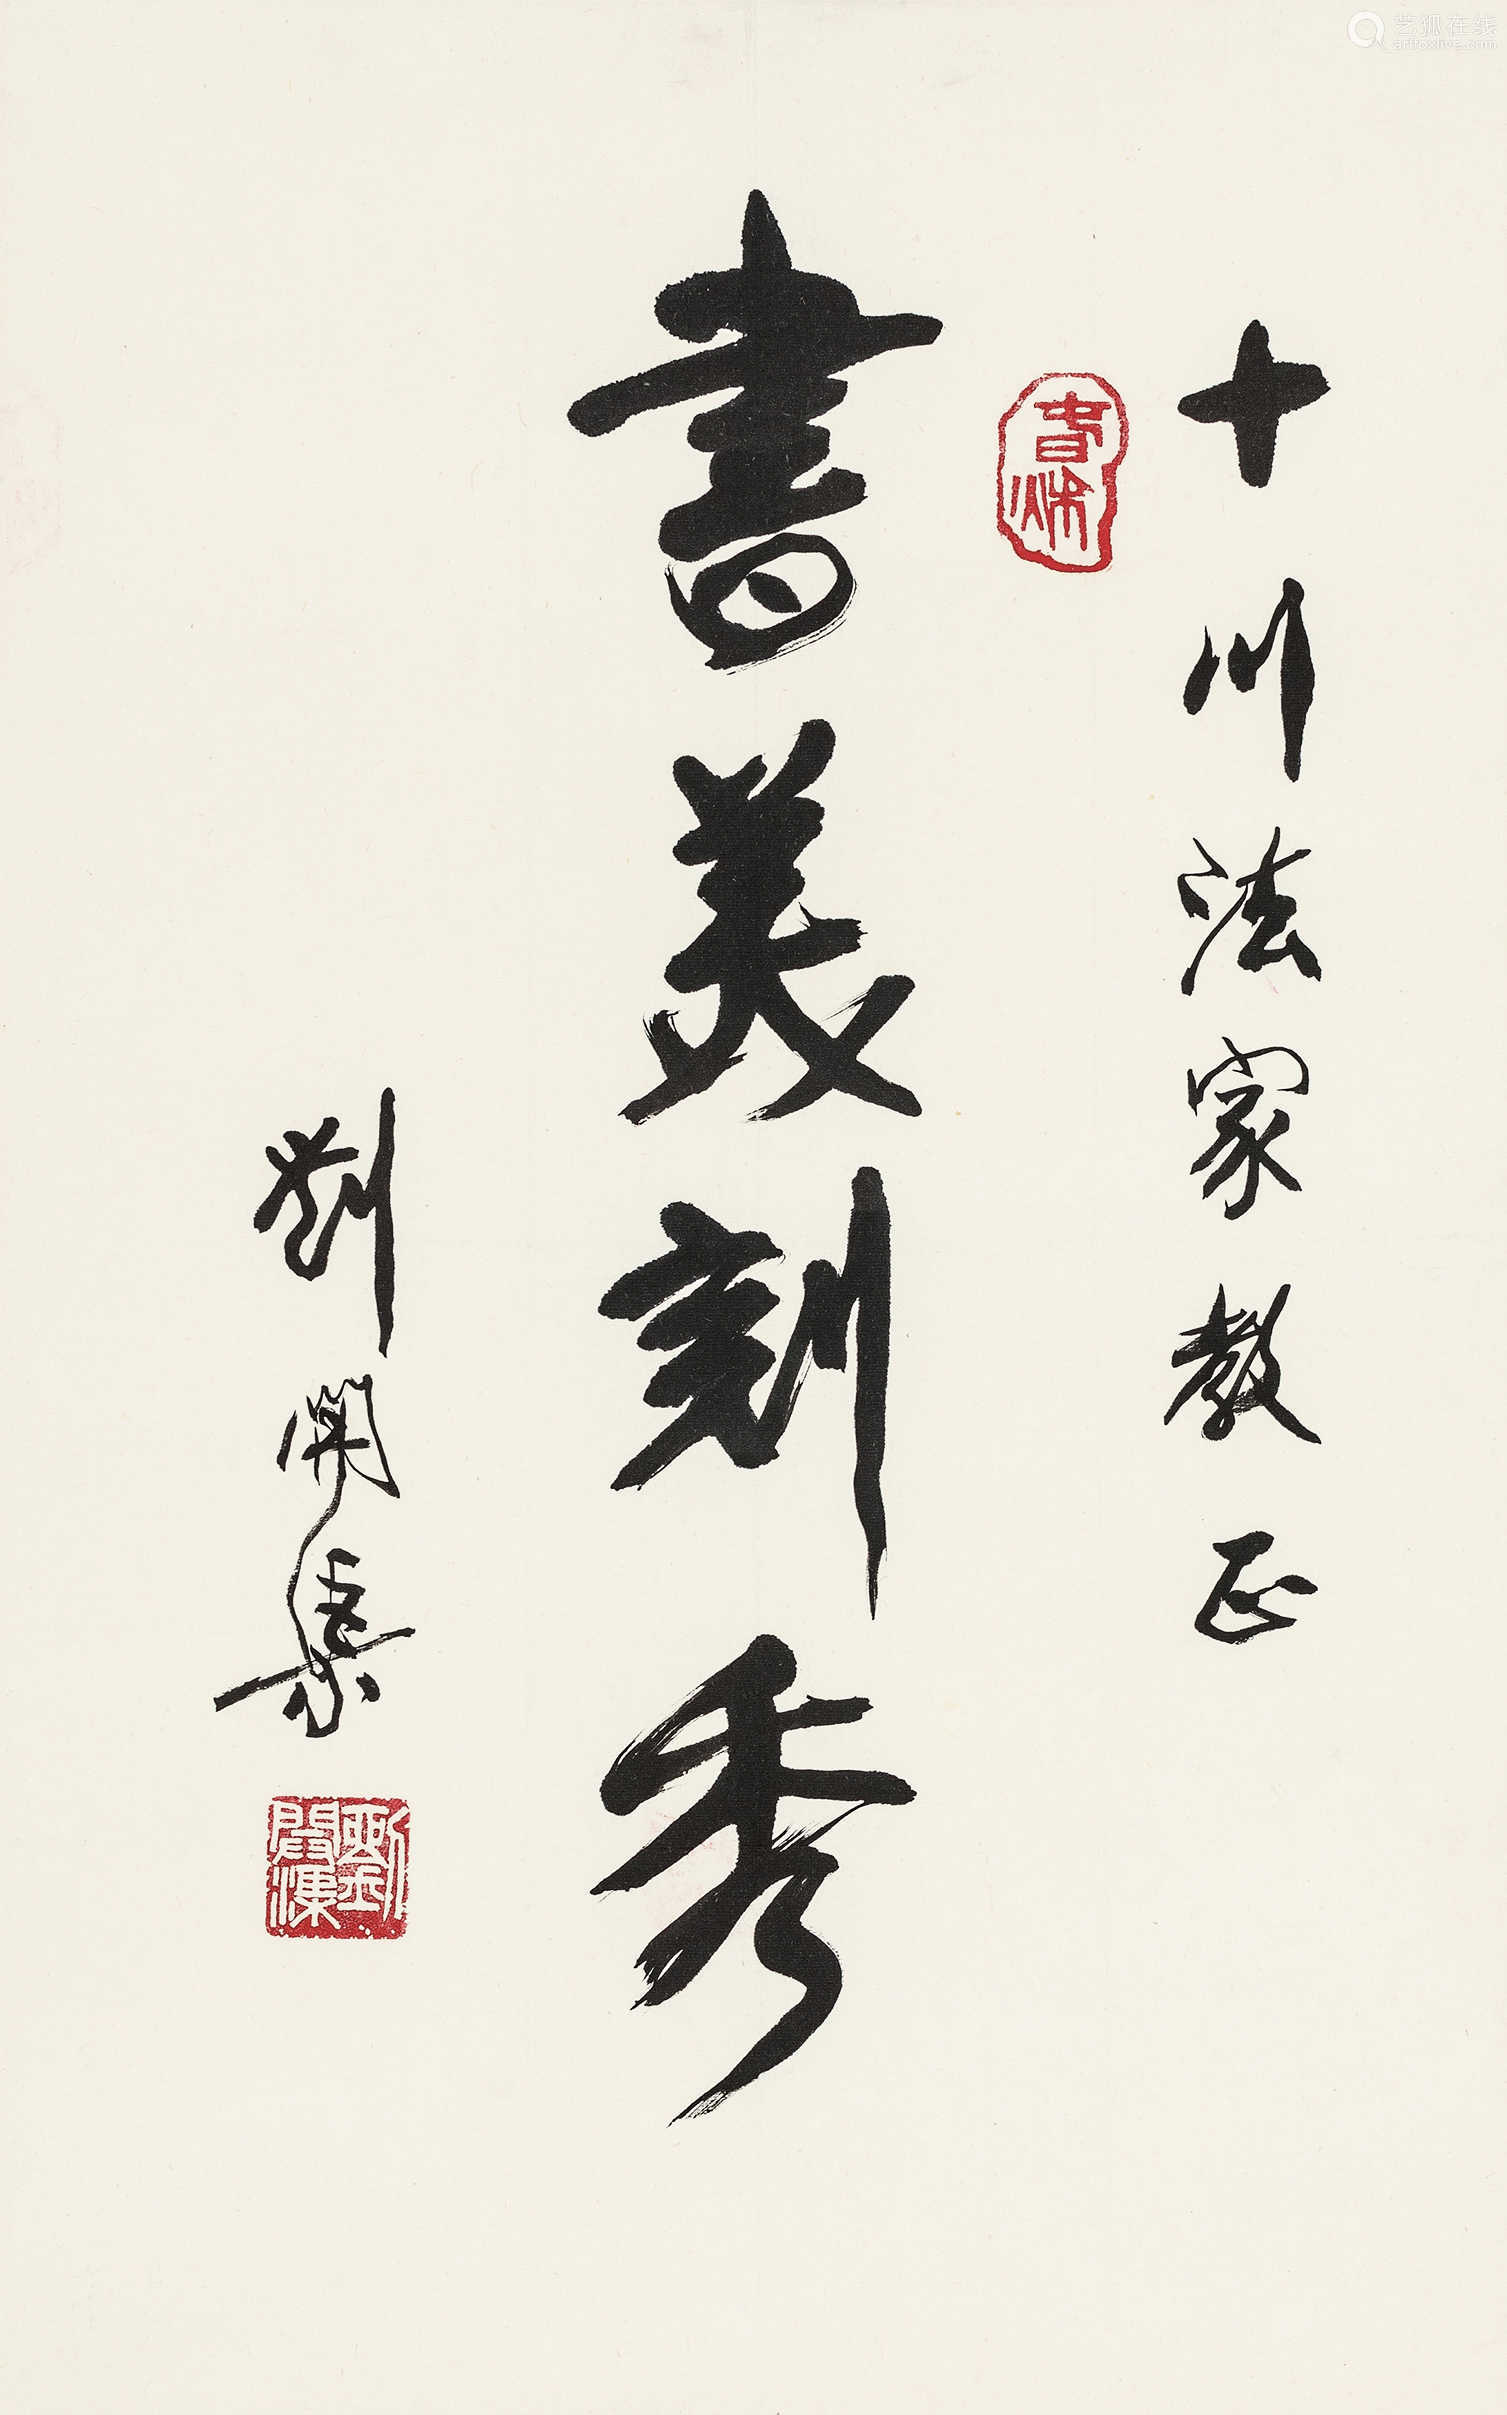 十川法家教正
書美刻秀
劉開渠
劉開渠
艺狐在线
artfoxlive.com